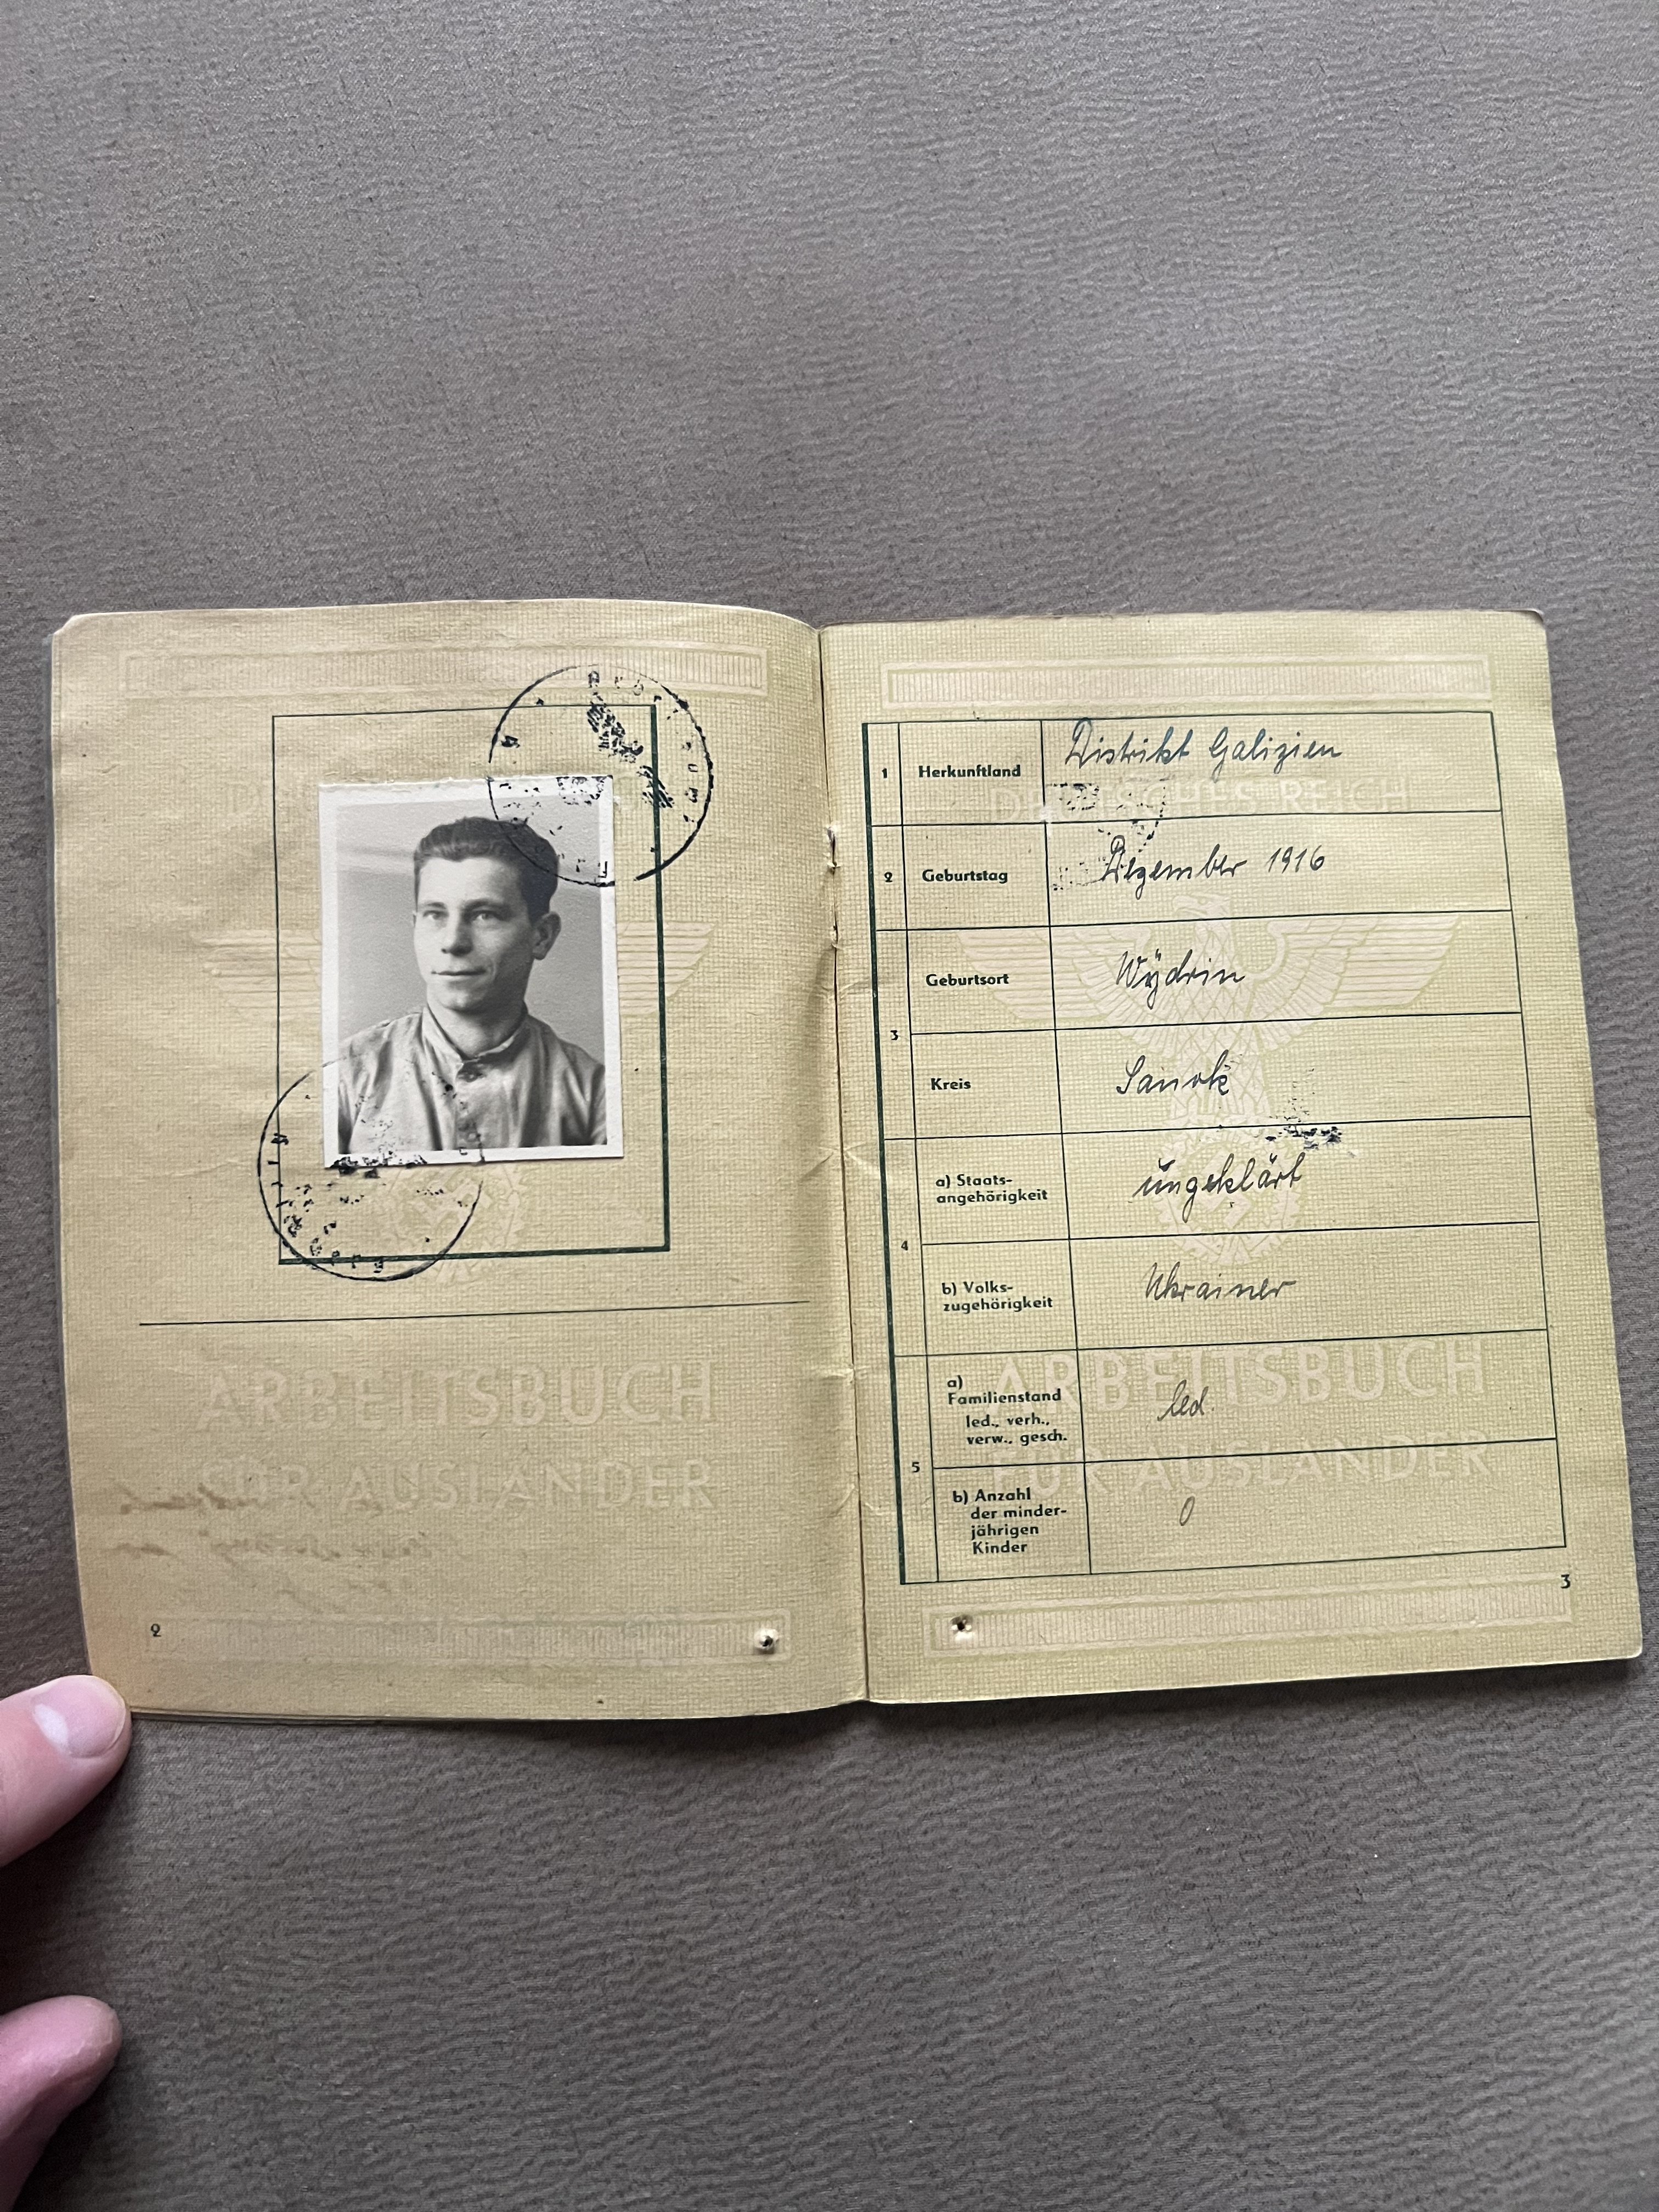 ARBEITSBUCH
FÜR AUSLÄNDER
2
DEUTSCHES REICH
1 Herkunftland Distrikt Galizien
2 Geburtstag Dezember 1916
3 Geburtsort Wydrin
Kreis Sanok
4 a) Staats-
angehörigkeit ungeklärt
b) Volks-
zugehörigkeit Ukrainer
5 a)
Familienstand
led., verh.,
verw., gesch. led.
b) Anzahl
der minder-
jährigen
Kinder 0
ARBEITSBUCH
FÜR AUSLÄNDER
3